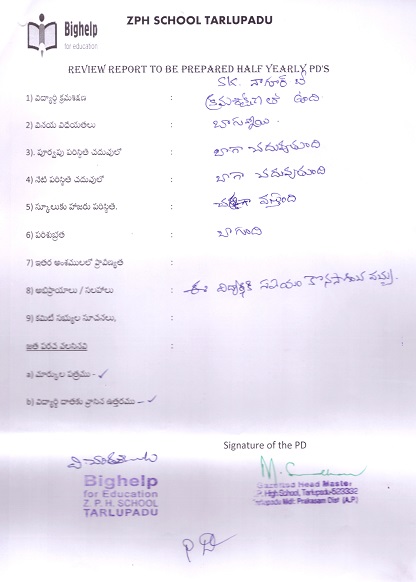 Bighelp
for education
ZPH SCHOOL TARLUPADU
REVIEW REPORT TO BE PREPARED HALF YEARLY PD'S
SK. నాగూర్ బీ
1) విద్యార్థి క్రమశిక్షణ : క్రమశిక్షణ తో ఉంది
2) వినయ విధేయతలు : బాగున్నాయి.
3). పూర్వపు పరిస్థితి చదువులో : బాగా చదువుచుంది
4) నేటి పరిస్థితి చదువులో : బాగా చదువుచుంది
5) స్కూలుకు హాజరు పరిస్థితి. : వస్తోంది
6) పరిశుభ్రత : బాగుంది
7) ఇతర అంశములలో ప్రావీణ్యత :
8) అభిప్రాయాలు / సలహాలు : ఈ విద్యార్థికి సహాయం కొనసాగించ వచ్చు.
9) కమిటీ సభ్యుల సూచనలు, :
జత పరచ వలసినవి :
a) మార్కుల పత్రము - ✓
b) విద్యార్థి దాతకు వ్రాసిన ఉత్తరము - ✓
Signature of the PD
Bighelp
for Education
Z. P. H. SCHOOL
TARLUPADU
Gazetted Head Master
Z.P. High School, Tarlupadu-523332
Tarlupadu Mdl: Prakasam Dist (A.P)
PD